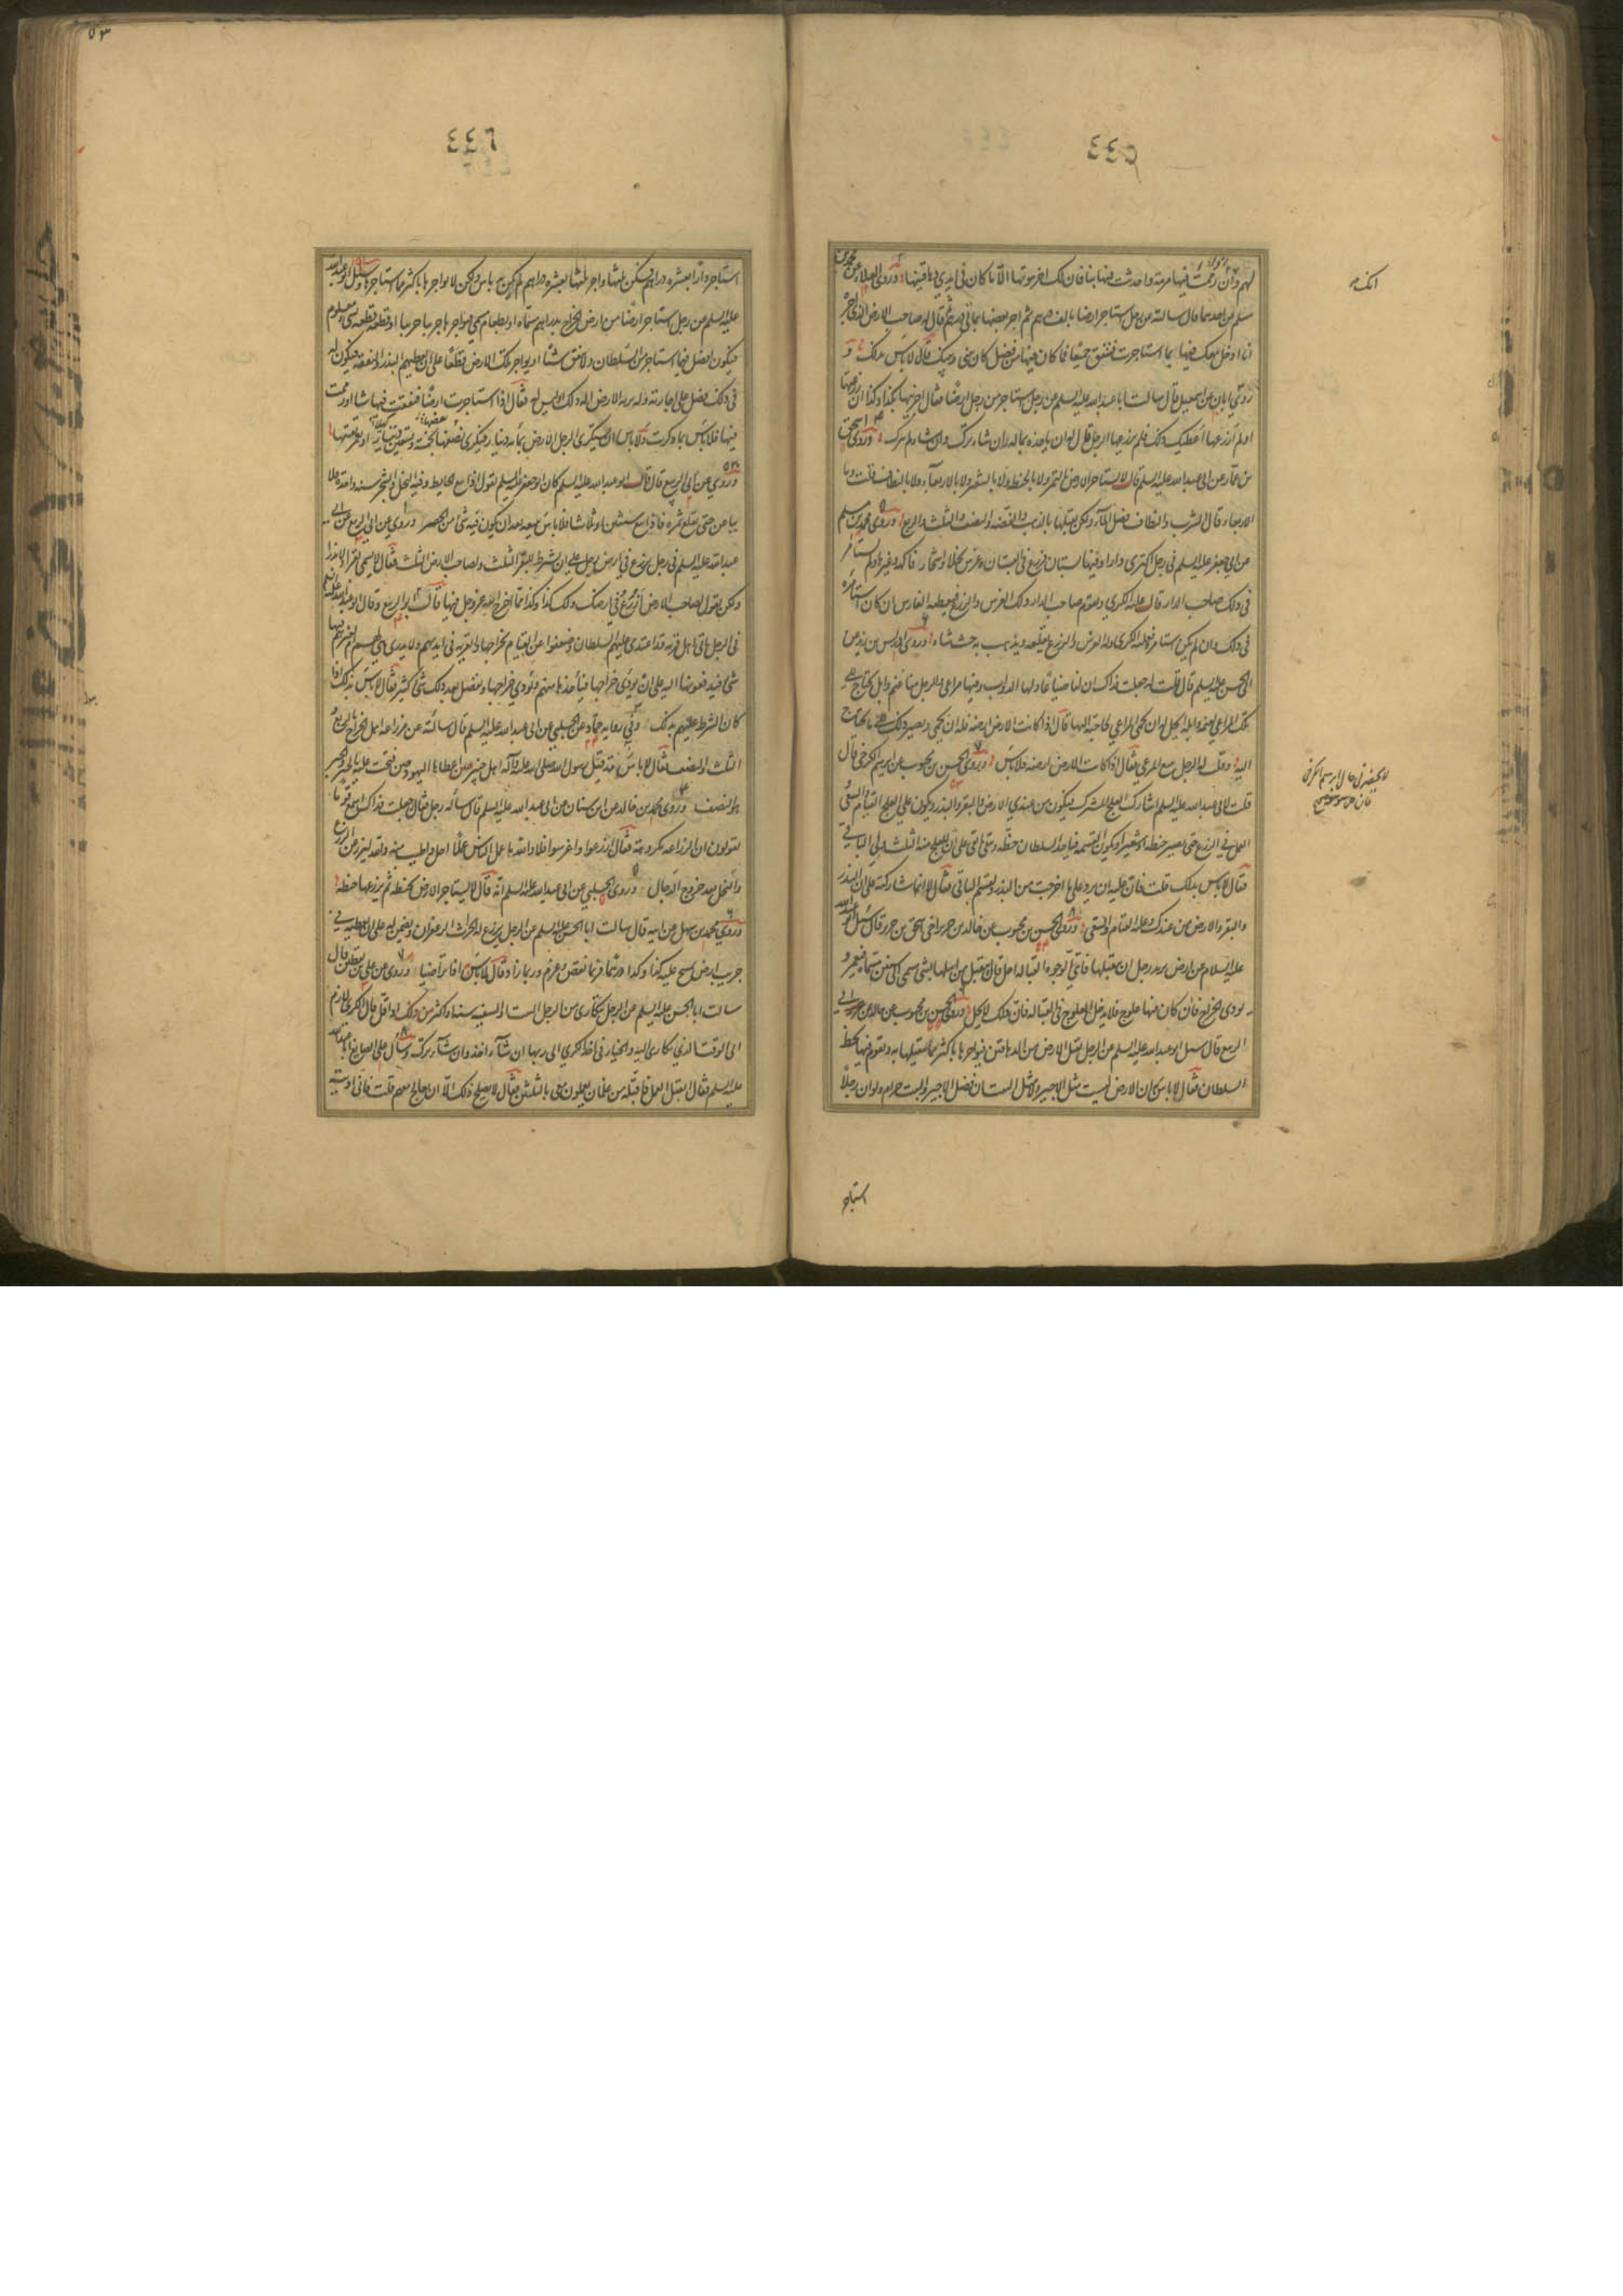 ٤٤٥
لهم وان رممت فيها مرمة واحدثت فيها بنا فان لك اجر بيوتها الا ما كان في ايدي دهاقينها وروى العلاء عن محمد بن
مسلم عن احدهما قال سالته عن رجل استاجر ارضا بالف درهم ثم اجر بعضها بمائتي درهم ثم قال له صاحب الارض الذي اجره
انا ادخل معك فيها بما استاجرت فننفق جميعا فما كان فيها من فضل كان بيني وبينك قال لا باس بذلك و
روى ابان عن اسمعيل قال سالت ابا عبدالله عليه السلم عن رجل استاجر من رجل ارضا فقال اجرنيها بكذا وكذا ان زرعتها
او لم ازرعها اعطيك ذلك فلم يزرعها الرجل قال له ان ياخذه بماله ان شاء ترك وان شاء لم يترك وروى اسحق
بن عمار عن ابي عبدالله عليه السلم قال لا تستاجر الارض بالتمر ولا بالحنطه ولا بالشعير ولا بالاربعاء ولا بالنطاف قلت وما
الاربعاء قال الشرب والنطاف فضل الماء ولكن تقبلها بالذهب والفضه والنصف والثلث والربع وروى محمد بن مسلم
عن ابي جعفر عليه السلم في رجل اكترى دارا وفيها بستان فزرع في البستان وغرس نخلا واشجارا وفاكهه وغيرها ولم يستامر
في ذلك صاحب الدار قال عليه الكرى ويقوم صاحب الدار ذلك الغرس والزرع فيعطيه الغارس ان كان استامره
في ذلك وان لم يكن استامره فعليه الكرى وله الغرس والزرع يقلعه ويذهب به حيث شاء وروى ادريس بن زيد عن
ابي الحسن عليه السلم قال قلت له جعلت فداك ان لنا ضياعا ولها الدواب وفيها مراعي وللرجل منا غنم وابل يحتاج الى
تلك المراعي لغنمه وابله ايحل له ان يحمي المراعي لحاجته اليها قال اذا كانت الارض ارضه فله ان يحمي ويصير ذلك الى ما يحتاج
اليه وقلت له الرجل يبيع المرعى فقال اذا كانت الارض ارضه فلا باس وروى الحسن بن محبوب عن ابراهيم الكرخي قال
قلت لابي عبدالله عليه السلم اشارك العلج المشرك فيكون من عندي الارض والبقر والبذر ويكون على العلج القيام والسقي
والعمل في الزرع حتى يصير حنطه او شعيرا وتكون القسمه فياخذ السلطان حظه ويبقى ما بقي على ان للعلج منه الثلث ولي الباقي
فقال لا باس بذلك قلت فان عليه ان يرد علي ما اخرجت من البذر ويقسم الباقي فقال لا انما شاركته على ان البذر
والبقر والارض من عندك وعليه القيام والسقي وروى الحسن بن محبوب عن خالد بن جرير اخي اسحق بن جرير قال سئل ابو عبدالله
عليه السلام عن ارض يريد رجل ان يتقبلها فاي وجوه القباله احل قال يتقبل من اهلها بشي مسمى الى سنين مسماه فيعمر و
يودي الخراج فان كان فيها علوج فلا يدخل العلوج في القباله فان ذلك لا يحل وروى الحسن بن محبوب عن خالد بن جرير عن ابي
الربيع قال سئل ابو عبدالله عليه السلم عن الرجل يتقبل الارض من الدهاقين فيواجرها باكثر مما يتقبلها به ويقوم فيها بحظ
السلطان فقال لا باس به ان الارض ليست مثل الاجير ولا مثل البيت ان فضل الاجير والبيت حرام ولو ان رجلا
استاجر
٤٤٦
استاجر دارا بعشره دراهم فسكن ثلثيها واجر ثلثها بعشره دراهم لم يكن به باس ولكن لا يواجرها باكثر مما استاجرها وسئل ابو عبدالله
عليه السلم عن رجل استاجر ارضا من ارض الخراج بدراهم مسماه او بطعام مسمى فيواجرها جريبا جريبا او قطعه قطعه بشي معلوم
فيكون له فضل فيما استاجر من السلطان ولا ينفق شيئا او يواجر تلك الارض قطعا على ان يعطيهم البذر والنفقه فيكون له
في ذلك فضل على اجارته وله تربة الارض اله ذلك او ليس له فقال اذا استاجرت ارضا فنفقت فيها شيئا او رممت
فيها فلا باس بما ذكرت ولا باس ان يستكري الرجل الارض بمائه دينار فيكري بعضها بخمسه وتسعين دينارا ويعمر بقيتها
وروي عن ابي الربيع قال قال ابو عبدالله عليه السلم كان ابو جعفر عليه السلم يقول اذا بيع الحايط وفيه النخل والشجر سنه واحده فلا
يباعن حتى تبلغ ثمره فاذا بيع سنتين او ثلاثا فلا باس ببيعه بعد ان يكون فيه شي من الخضر وروي عن ابي الربيع عن ابي
عبدالله عليه السلم في رجل يزرع في ارض رجل على ان يشترط للبقر الثلث ولصاحب الارض الثلث فقال لا يسمي بقرا ولا بذرا
ولكن يقول لصاحب الارض ازرع في ارضك ولك كذا وكذا مما اخرج الله عز وجل فيها قال ابو الربيع وقال ابو عبدالله عليه السلم
في الرجل ياتي اهل قريه وقد اعتدى عليهم السلطان وضعفوا عن القيام بخراجها والقريه في ايديهم ولا يدري هي لهم ام لغيرهم فيها
شي فيدفعونها اليه على ان يودي خراجها فياخذها منهم ويودي خراجها ويفضل بعد ذلك شي كثير فقال لا باس بذلك اذا
كان الشرط عليهم بذلك وفي روايه حماد عن الحلبي عن ابي عبدالله عليه السلم قال سالته عن مزارعه اهل الخراج بالربع و
الثلث والنصف فقال لا باس قد قبل رسول الله صلى الله عليه واله اهل خيبر حين اعطاها اليهود حين فتحت عليه بالخبر والخبر
هو النصف وروى محمد بن خالد عن ابن سنان عن ابي عبدالله عليه السلم قال ساله رجل فقال جعلت فداك اسمع قوما
يقولون ان الزراعه مكروهه فقال ازرعوا واغرسوا فلا والله ما عمل الناس عملا احل واطيب منه والله ليزرعن الزرع
والنخل بعد خروج الدجال وروى الحلبي عن ابي عبدالله عليه السلم انه قال لا يستاجر الارض بحنطه ثم يزرعها حنطه
وروى محمد بن سهل عن ابيه قال سالت ابا الحسن عليه السلم عن الرجل يزرع له الحراث الزعفران ويضمن له على ان يعطيه في
جريب ارض يمسح عليه كذا وكذا درهما فربما نقص وغرم وربما زاد قال لا باس اذا تراضيا وروي عن علي بن يقطين قال
سالت ابا الحسن عليه السلم عن الرجل يتكارى من الرجل البيت والسفينه سنه او اكثر من ذلك او اقل قال الكرى لازم
الى الوقت الذي تكارى اليه والخيار في اخذ الكرى الى ربها ان شاء اخذ وان شاء ترك وسال علي الصايغ ابا عبدالله
عليه السلم فقال اتقبل العمل فاقبله من غلمان يعملون معي بالثلثين فقال لا يصلح ذلك الا ان تعالج معهم قلت فاني اذيبه